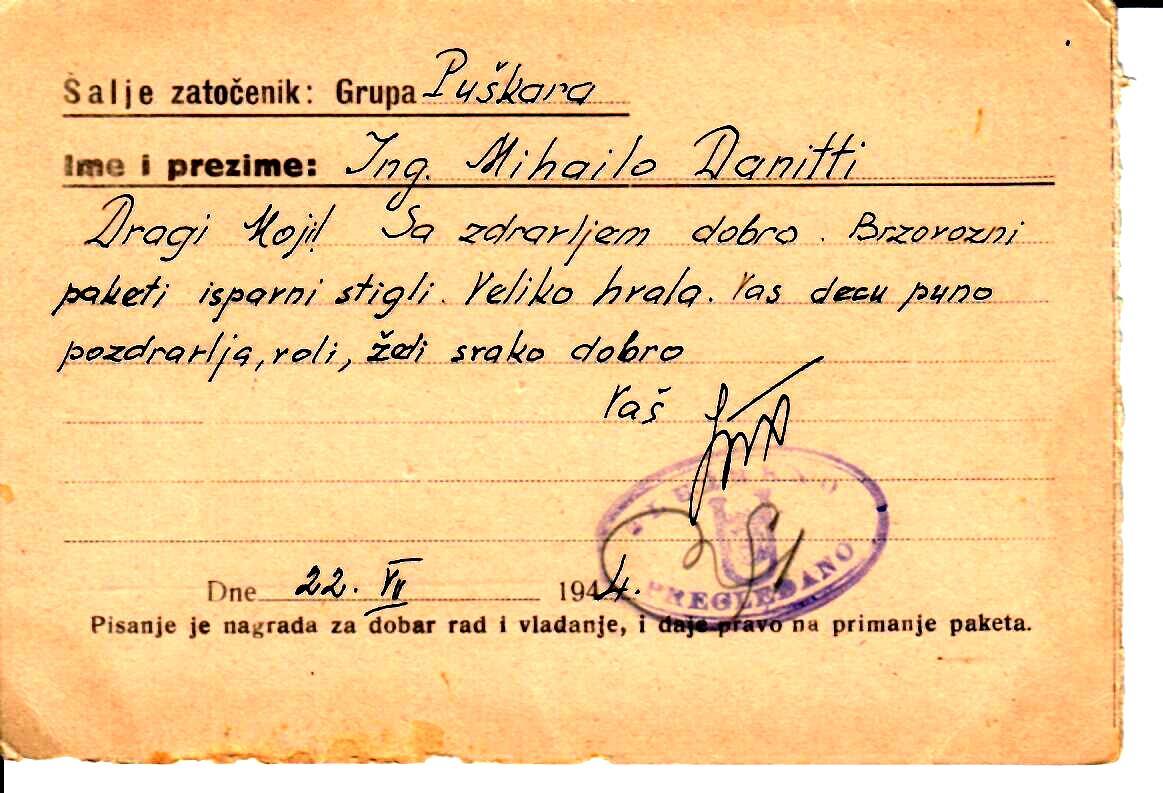 Šalje zatočenik: Grupa Puškara
Ime i prezime: Ing. Mihailo Danitti
Dragi Moji! Sa zdravljem dobro. Brzovozni
paketi ispavni stigli. Veliko hvala. Vas decu puno
pozdravlja, voli, želi svako dobro
Vaš
PREGLEDANO
Dne 22. VII 1944.
Pisanje je nagrada za dobar rad i vladanje, i daje pravo na primanje paketa.